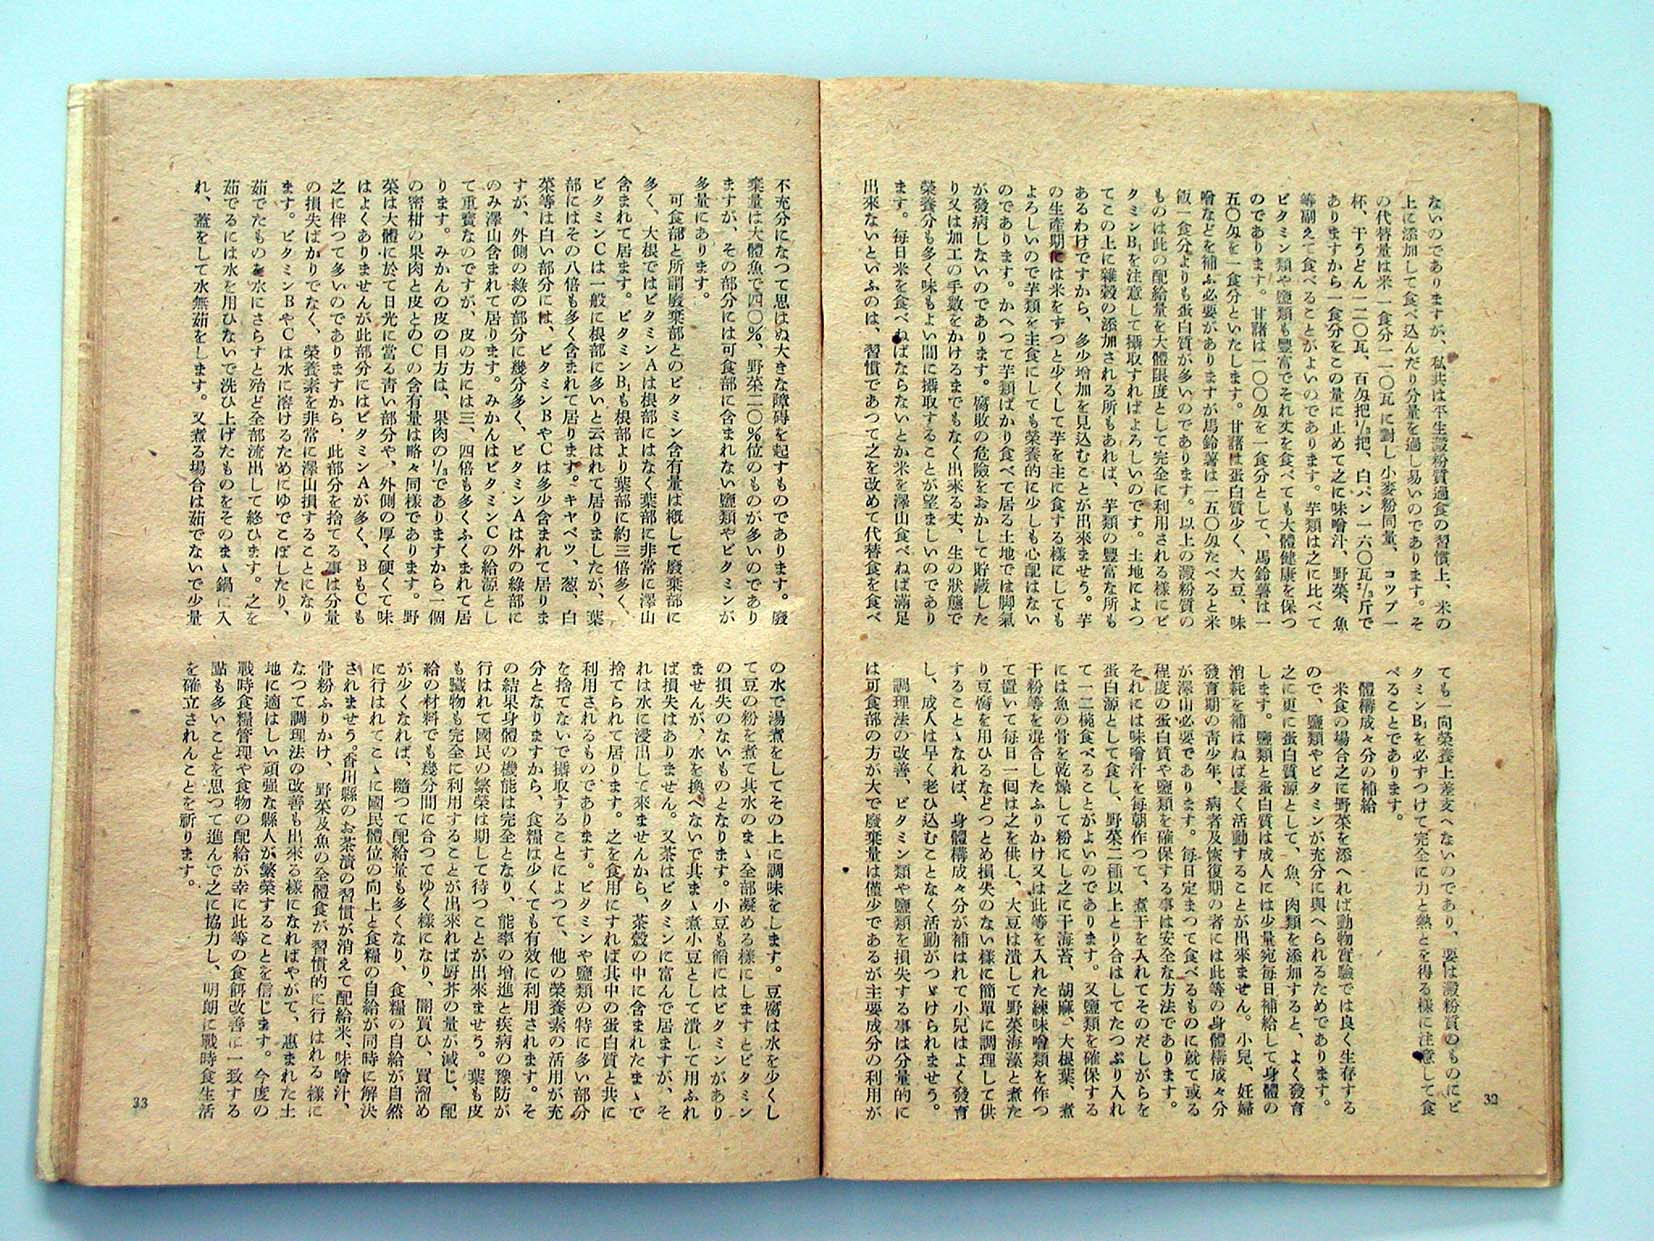 ないのでありますが、私共は平生澱粉質過食の習慣上、米の
上に添加して食べ込んだり分量を過し易いのであります。そ
の代替量は米一食分一二〇瓦に對し小麥粉同量、コップ一
杯、干うどん一二〇瓦、百匁把⅓把、白パン一六〇瓦⅔斤で
ありますから一食分をこの量に止めて之に味噌汁、野菜、魚
等副えて食べることがよいのであります。芋類は之に比べて
ビタミン類や鹽類も豐富でそれ丈を食べても大體健康を保つ
のであります。甘藷は一〇〇匁を一食分として、馬鈴薯は一
五〇匁を一食分といたします。甘藷は蛋白質少く、大豆、味
噌などを補ふ必要がありますが馬鈴薯は一五〇匁たべると米
飯一食分よりも蛋白質が多いのであります。以上の澱粉質の
ものは此の配給量を大體限度として完全に利用される樣にビ
タミンB₁を注意して攝取すればよろしいのです。土地によつ
てこの上に雜穀の添加される所もあれば、芋類の豐富な所も
あるわけですから、多少增加を見込むことが出來ませう。芋
の生產期には米をずつと少くして芋を主に食する樣にしても
よろしいので芋類を主食にしても榮養的に少しも心配はない
のであります。かへつて芋類ばかり食べて居る土地では脚氣
が發病しないのであります。腐敗の危險をおかして貯藏した
り又は加工の手數をかけるまでもなく出來る丈、生の狀態で
榮養分も多く味もよい間に攝取することが望ましいのであり
ます。每日米を食べねばならないとか米を澤山食べねば滿足
出來ないといふのは、習慣であつて之を改めて代替食を食べ
ても一向榮養上差支へないのであり、要は澱粉質のものにビ
タミンB₁を必ずつけて完全に力と熱とを得る樣に注意して食
べることであります。
體構成々分の補給
米食の場合之に野菜を添へれば動物實驗では良く生存する
ので、鹽類やビタミンが充分に與へられるためであります。
之に更に蛋白質源として、魚、肉類を添加すると、よく發育
します。鹽類と蛋白質は成人には少量宛每日補給して身體の
消耗を補はねば長く活動することが出來ません。小兒、妊婦
發育期の靑少年、病者及恢復期の者には此等の身體構成々分
が澤山必要であります。每日定まつて食べるものに就て或る
程度の蛋白質や鹽類を確保する事は安全な方法であります。
それには味噌汁を每朝作つて、煮干を入れてそのだしがらを
蛋白源として食し、野菜二種以上とり合はしてたつぷり入れ
て一二椀食べることがよいのであります。又鹽類を確保する
には魚の骨を乾燥して粉にし之に干海苔、胡麻、大根葉、煮
干粉等を混合したふりかけ又は此等を入れた練味噌類を作つ
て置いて每日一囘は之を供し、大豆は潰して野菜海藻と煮た
り豆腐を用ひるなどつとめ損失のない樣に簡單に調理して供
することゝなれば、身體構成々分が補はれて小兒はよく發育
し、成人は早く老ひ込むことなく活動がつゞけられませう。
調理法の改善、ビタミン類や鹽類を損失する事は分量的に
は可食部の方が大で廢棄量は僅少であるが主要成分の利用が
32
不充分になつて思はぬ大きな障碍を起すものであります。廢
棄量は大體魚で四〇%、野菜二〇%位のものが多いのであり
ますが、その部分には可食部に含まれない鹽類やビタミンが
多量にあります。
可食部と所謂廢棄部とのビタミン含有量は槪して廢棄部に
多く、大根ではビタミンAは根部にはなく葉部に非常に澤山
含まれて居ます。ビタミンB₁も根部より葉部に約三倍多く、
ビタミンCは一般に根部に多いと云はれて居りましたが、葉
部にはその八倍も多く含まれて居ります。キャベツ、葱、白
菜等は白い部分には、ビタミンBやCは多少含まれて居りま
すが、外側の綠の部分に幾分多く、ビタミンAは外の綠部に
のみ澤山含まれて居ります。みかんはビタミンCの給源とし
て重寶なのですが、皮の方には三、四倍も多くふくまれて居
ります。みかんの皮の目方は、果肉の⅓でありますから一個
の密柑の果肉と皮とのCの含有量は略々同樣であります。野
菜は大體に於て日光に當る靑い部分や、外側の厚く硬くて味
はよくありませんが此部分にはビタミンAが多く、BもCも
之に伴つて多いのでありますから、此部分を捨てる事は分量
の損失ばかりでなく、榮養素を非常に澤山損することになり
ます。ビタミンBやCは水に溶けるためにゆでこぼしたり、
茹でたものを水にさらすと殆ど全部流出して終ひます。之を
茹でるには水を用ひないで洗ひ上げたものをそのまゝ鍋に入
れ、蓋をして水無茹をします。又煮る場合は茹でないで少量
の水で湯煮をしてその上に調味をします。豆腐は水を少くし
て豆の粉を煮て其水のまゝ全部凝める樣にしますとビタミン
の損失のないものとなります。小豆も餡にはビタミンがあり
ませんが、水を換へないで其まゝ煮小豆として潰して用ふれ
ば損失はありません。又茶はビタミンに富んで居ますが、そ
れは水に浸出して來ませんから、茶殼の中に含まれたまゝで
捨てられて居ります。之を食用にすれば其中の蛋白質と共に
利用されるものであります。ビタミンや鹽類の特に多い部分
を捨てないで攝取することによつて、他の榮養素の活用が充
分となりますから、食糧は少くても有效に利用されます。そ
の結果身體の機能は完全となり、能率の增進と疾病の豫防が
行はれて國民の繁榮は期して待つことが出來ませう。葉も皮
も臟物も完全に利用することが出來れば厨芥の量が減じ、配
給の材料でも幾分間に合つてゆく樣になり、闇買ひ、買溜め
が少くなれば、隨つて配給量も多くなり、食糧の自給が自然
に行はれてこゝに國民體位の向上と食糧の自給が同時に解決
されませう。香川縣のお茶漬の習慣が消えて配給米、味噌汁、
骨粉ふりかけ、野菜及魚の全體食が習慣的に行はれる樣に
なつて調理法の改善も出來る樣になればやがて、惠まれた土
地に適はしい頑强な縣人が繁榮することを信じます。今度の
戰時食糧管理や食物の配給が幸に此等の食餌改善に一致する
點も多いことを思つて進んで之に協力し、明朗に戰時食生活
を確立されんことを祈ります。
33